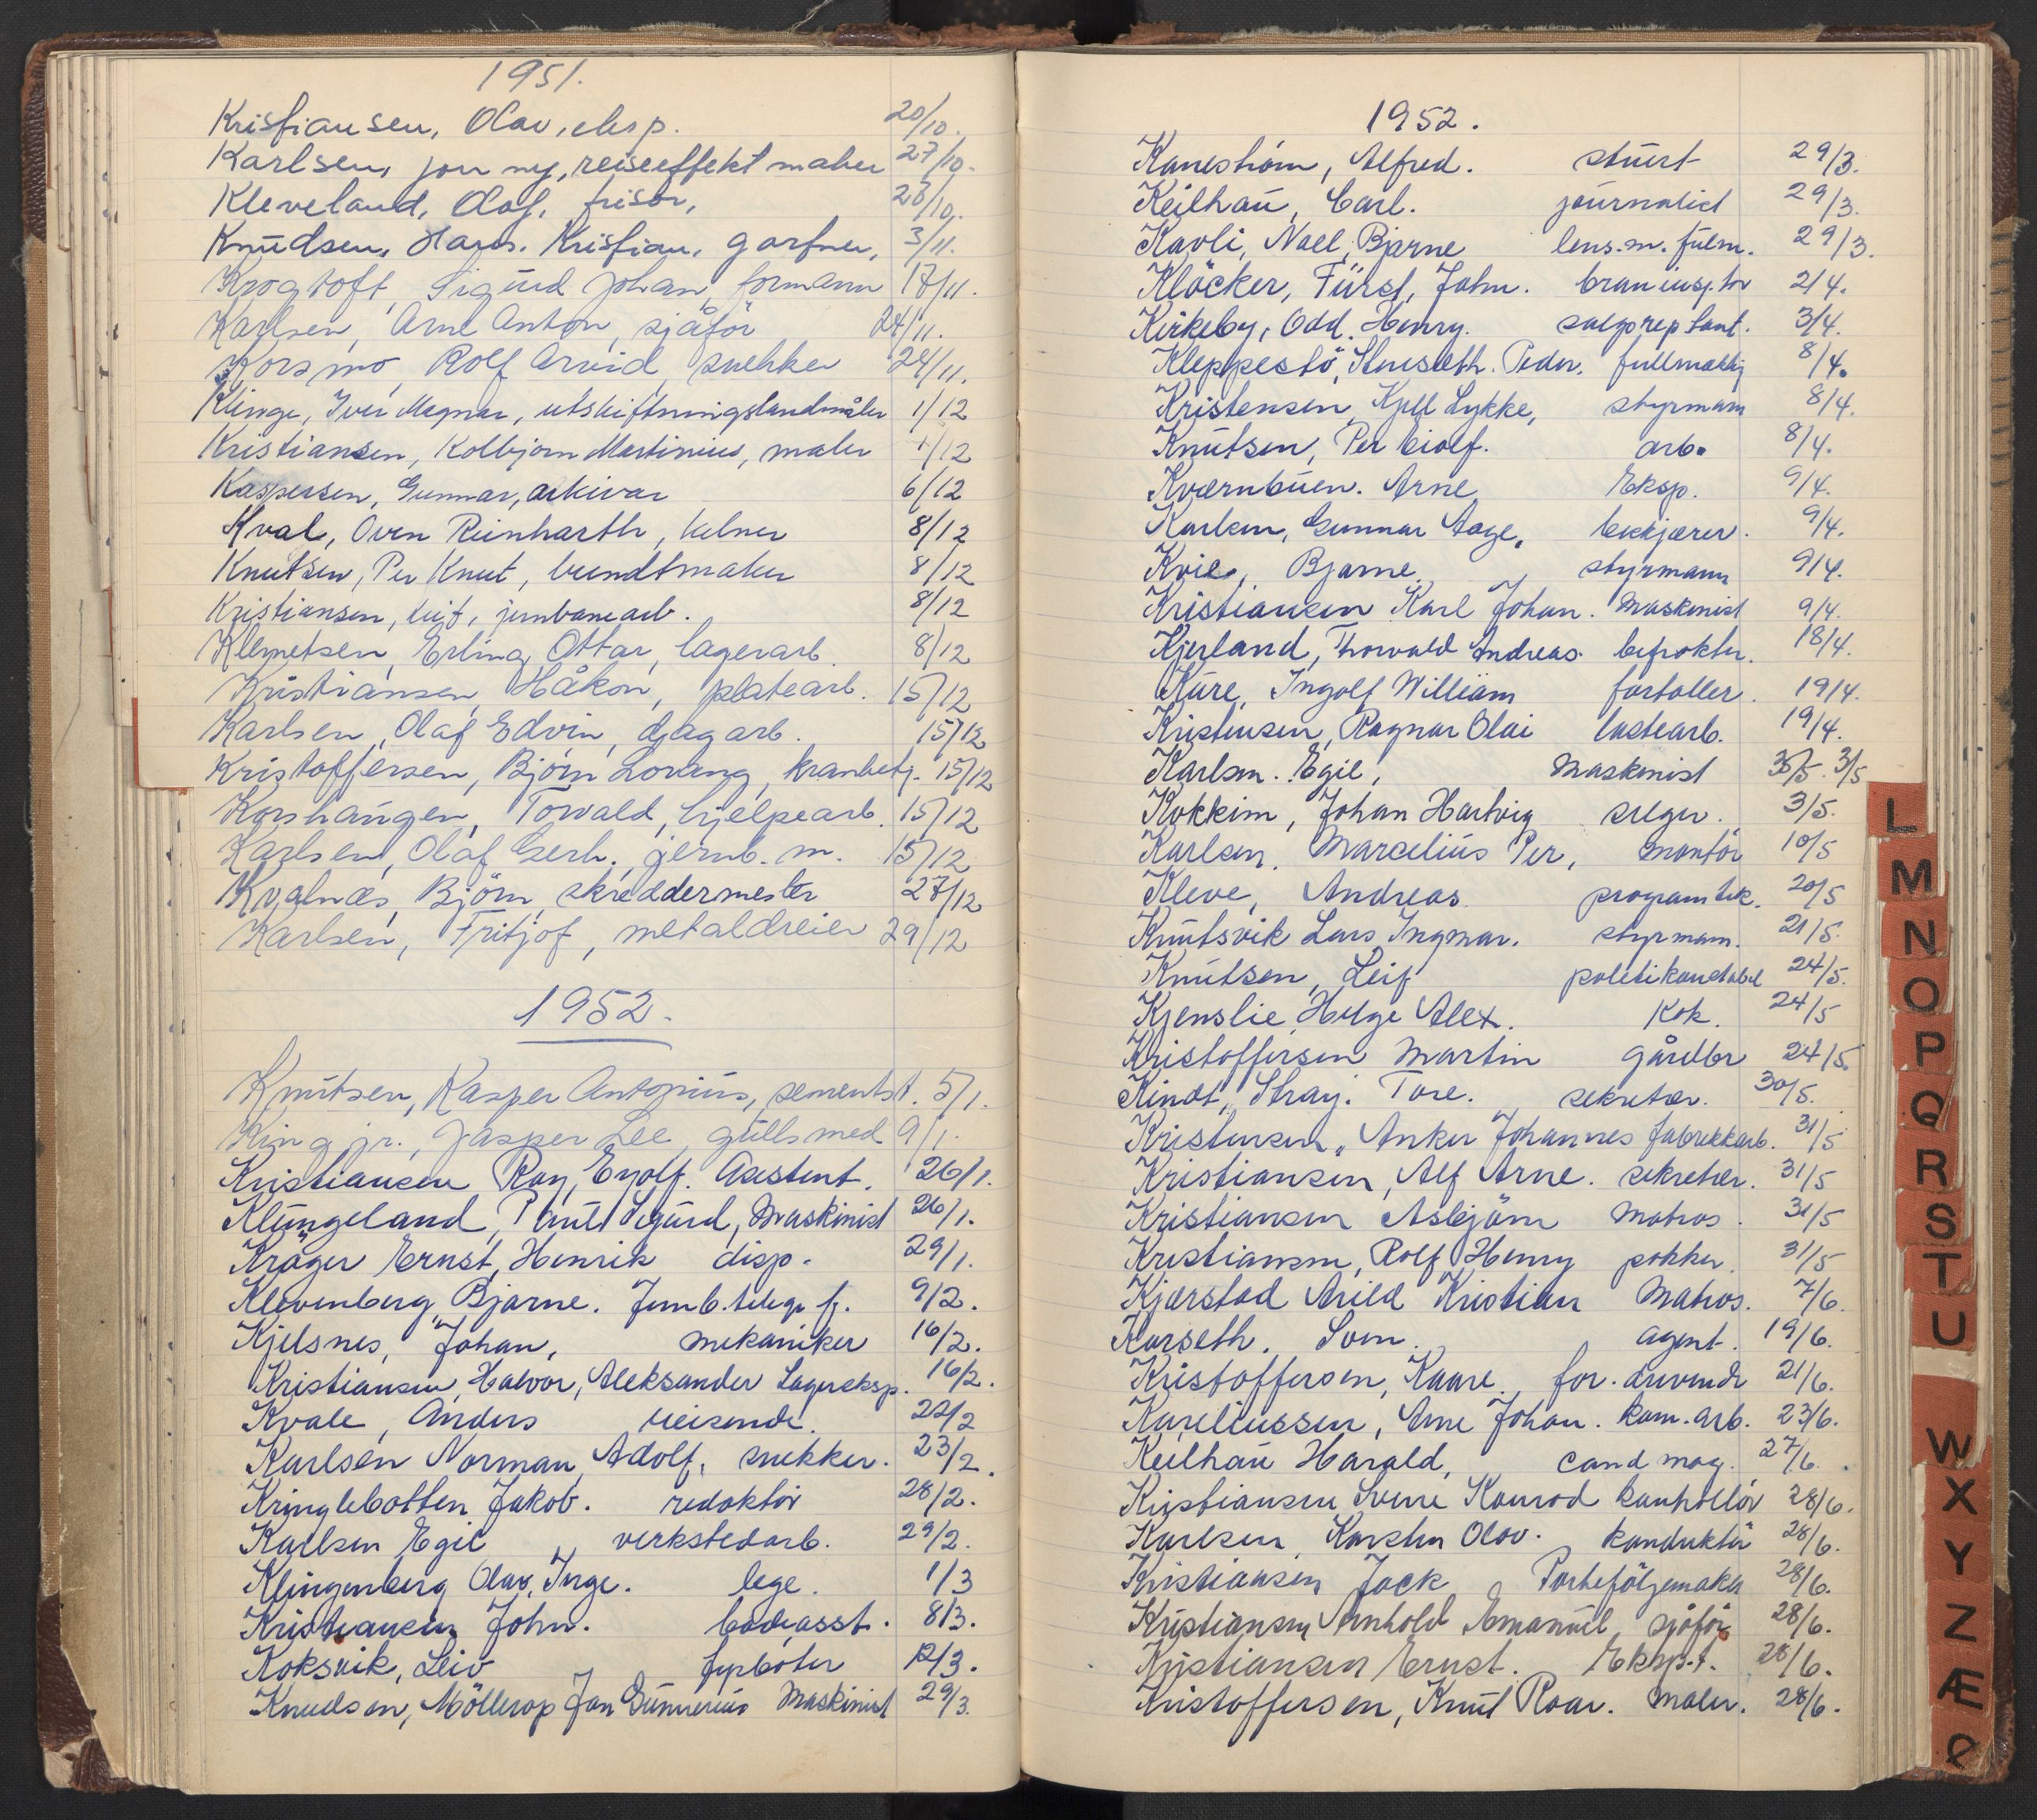 1951.
Kristiansen, Olav, eksp. 20/10.
Karlsen, jon ny, reiseeffektmaker 27/10.
Kleveland, Olaf, frisör, 28/10.
Knudsen, Hans. Kristian, gartner, 3/11.
Krogtoft, Sigurd Johan, formann 17/11.
Karlsen, Arne Anton, sjåför 24/11.
Korsmo, Rolf Arvid, snekker 24/11.
Klinge, Iver Magnar, utskiftningslandmåler 1/12
Kristiansen, Kolbjørn Martinius, maler 1/12
Kaspersen, Gunnar, arkivar 6/12
Kval, Oven Reinharth, kelner 8/12
Knutsen, Per Knut, bundtmaker 8/12
Kristiansen, Leif, jernbanearb. 8/12
Klemetsen, Erling Ottar, lagerarb. 8/12
Kristiansen, Håkon, platearb. 15/12
Karlsen, Olaf Edvin, djagarb. 15/12
Kristoffersen, Björn Lorang, kranbetj. 15/12
Korshaugen, Torvald, hjelpearb. 15/12
Karlsen, Olaf Gerh. jernb. m. 15/12
Kvalnæs, Björn, skreddermester 27/12
Karlsen, Fritjof, metaldreier 29/12
1952.
Knutsen, Kasper Antonius, sementst. 5/1.
King jr., Jasper Lee, gullsmed 9/1.
Kristiansen Roy, Eyolf. Assistent. 26/1.
Klungeland, Paul Sigurd, Maskinist 26/1.
Kräger Ernst, Henrik disp. 29/1.
Klevenberg, Bjarne. Jernb. telegr. fj. 9/2.
Kjelsnes, Johan, mekaniker 16/2.
Kristiansen, Halvor, Aleksander Lagereksp. 16/2.
Kvale, Anders reisende. 22/2
Karlsen Norman, Adolf, snekker. 23/2.
Kringlebotten, Jakob. redaktör 28/2.
Karlsen Egil, verkstedarb. 29/2.
Klingenberg Olav, Inge. lege. 1/3
Kristiansen John. badeasst. 8/3.
Koksvik, Leiv fyrböter 12/3.
Knudsen, Möllerop Jan Gunnerius Maskinist 29/3.
1952.
Kaneström, Alfred. stuert 29/3.
Keilhau, Carl. journalist 29/3.
Kavli, Nael, Bjarne lens.m. fulm. 29/3.
Klöcker, Fürst, John. branninsp.tør 2/4.
Kirkeby, Odd. Henry. salgsrep.tant. 3/4.
Kleppestö, Stenseth. Peder. fullmektig 8/4.
Kristensen, Kjell Lykke, styrmann 8/4.
Knutsen, Per Eiolf. arb. 8/4.
Kværnbuen. Arne. Eksp. 9/4.
Karlsen, Gunnar Aage. 9/4.
Kvie, Bjarne. styrmann 9/4.
Kristiansen Karl Johan. Maskinist 9/4.
Kjerland, Thorvald Andreas. befrakter. 18/4.
Kure, Ingolf William fortoller. 19/4.
Kristensen, Ragnar Olai lastearb. 19/4.
Karlsen. Egil, Maskinist 30/5. 3/5
Kokkim, Johan Hartvig selger. 3/5.
Karlsen, Marcelius Per, montör 10/5
Kleve, Andreas programtek. 20/5
Knutsvik Lars Ingmar. styrmann. 21/5.
Knutsen, Leif politikonstabel 24/5.
Kjenslie, Helge Alex. Kok. 24/5
Kristoffersen Martin gårdbr 24/5.
Kindt, Stray. Tore. sekretær. 30/5.
Kristensen, Anker Johannes fabrikkarb. 31/5
Kristiansen, Alf Arne. sekretær. 31/5
Kristiansen Asbjörn Matros. 31/5
Kristiansen, Rolf Henry pakker. 31/5
Kjærstad Arild Kristian Matros. 7/6.
Karseth. Sven. agent. 19/6.
Kristoffersen, Kaare. for.druvende 21/6.
Kareliussen, Arne Johan. kom.arb. 23/6.
Keilhau Harald, cand mag. 27/6.
Kristiansen Sverre Konrad kontrollör 28/6.
Karlsen, Karsten Olav. konduktör 28/6.
Kristiansen Jack Porteföljemaker 28/6.
Kristiansen Arnhold Emanuel sjåför 28/6.
Kristiansen Ernst. Eksp.t. 28/6.
Kristoffersen, Knut Roar. Maler. 28/6.
L
M
N
O
P
Q
R
S
T
U
W
X
Y
Z
Æ
Ø